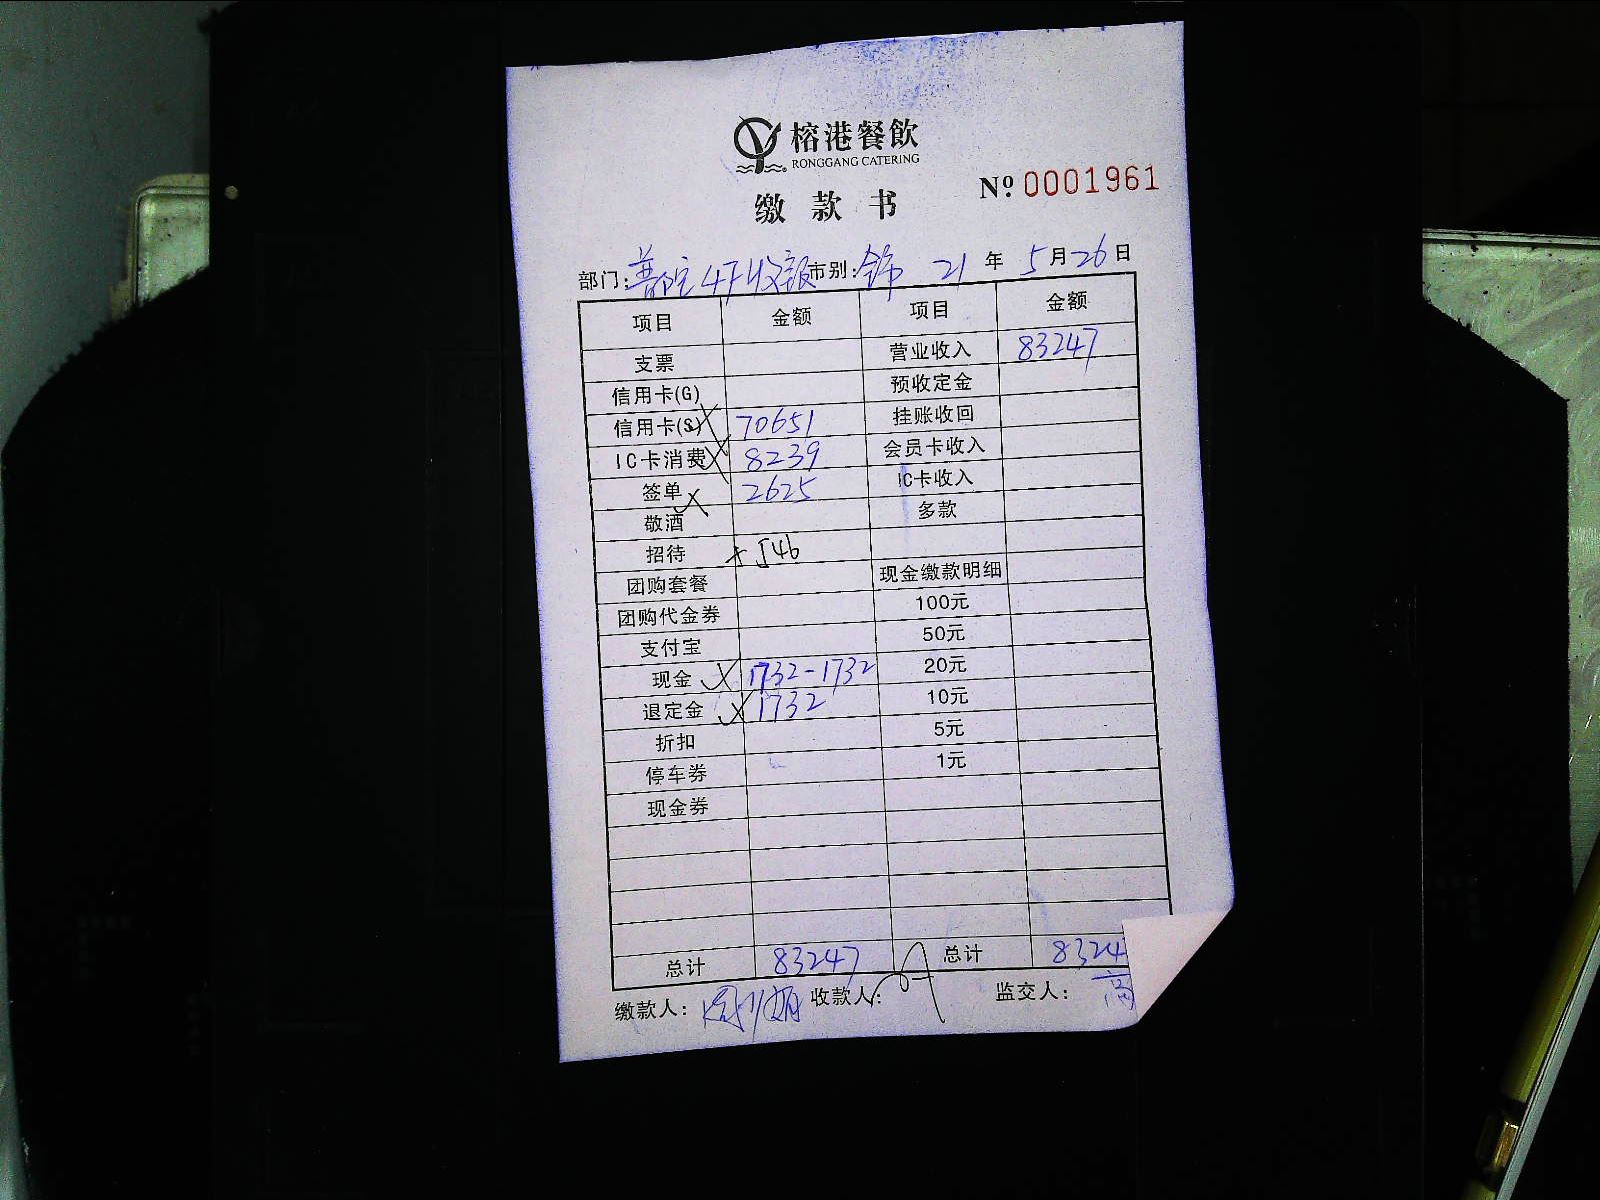 榕港餐飲
RONGGANG CATERING
缴款书 Nº 0001961
部门: 4F收银 市别: 21年5月26日
项目 金额 项目 金额
支票 营业收入 83247
信用卡(G) 预收定金
信用卡(S) 70651 挂账收回
IC卡消费 8239 会员卡收入
签单 2625 IC卡收入
敬酒 多款
招待 546
团购套餐 现金缴款明细
团购代金券 100元
支付宝 50元
现金 1732-1732 20元
退定金 1732 10元
折扣 5元
停车券 1元
现金券
总计 83247 总计 8324
缴款人: 收款人: 监交人: